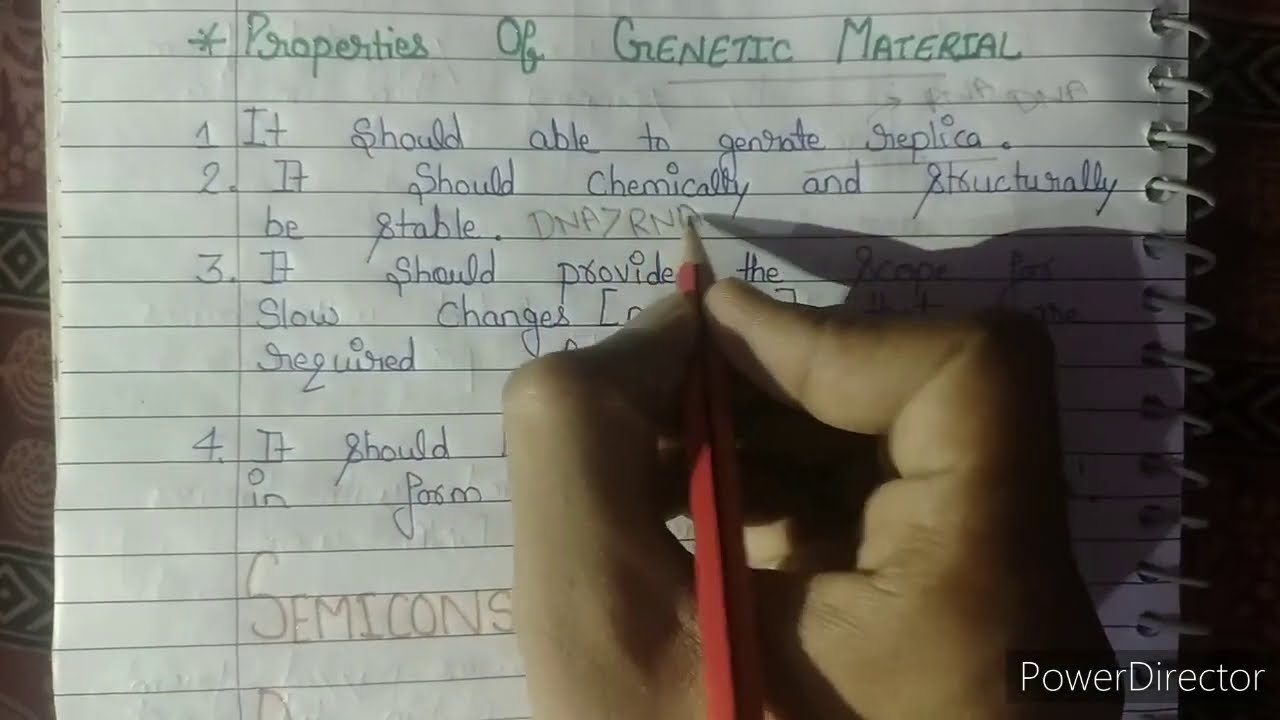 * Properties Of GENETIC MATERIAL
RNA DNA
1 It should able to genrate replica.
2. It should chemically and structurally
be stable. DNA>RNA
3. It should provide the scope for
slow changes [
required
4. It should
in form
SEMICONS
PowerDirector